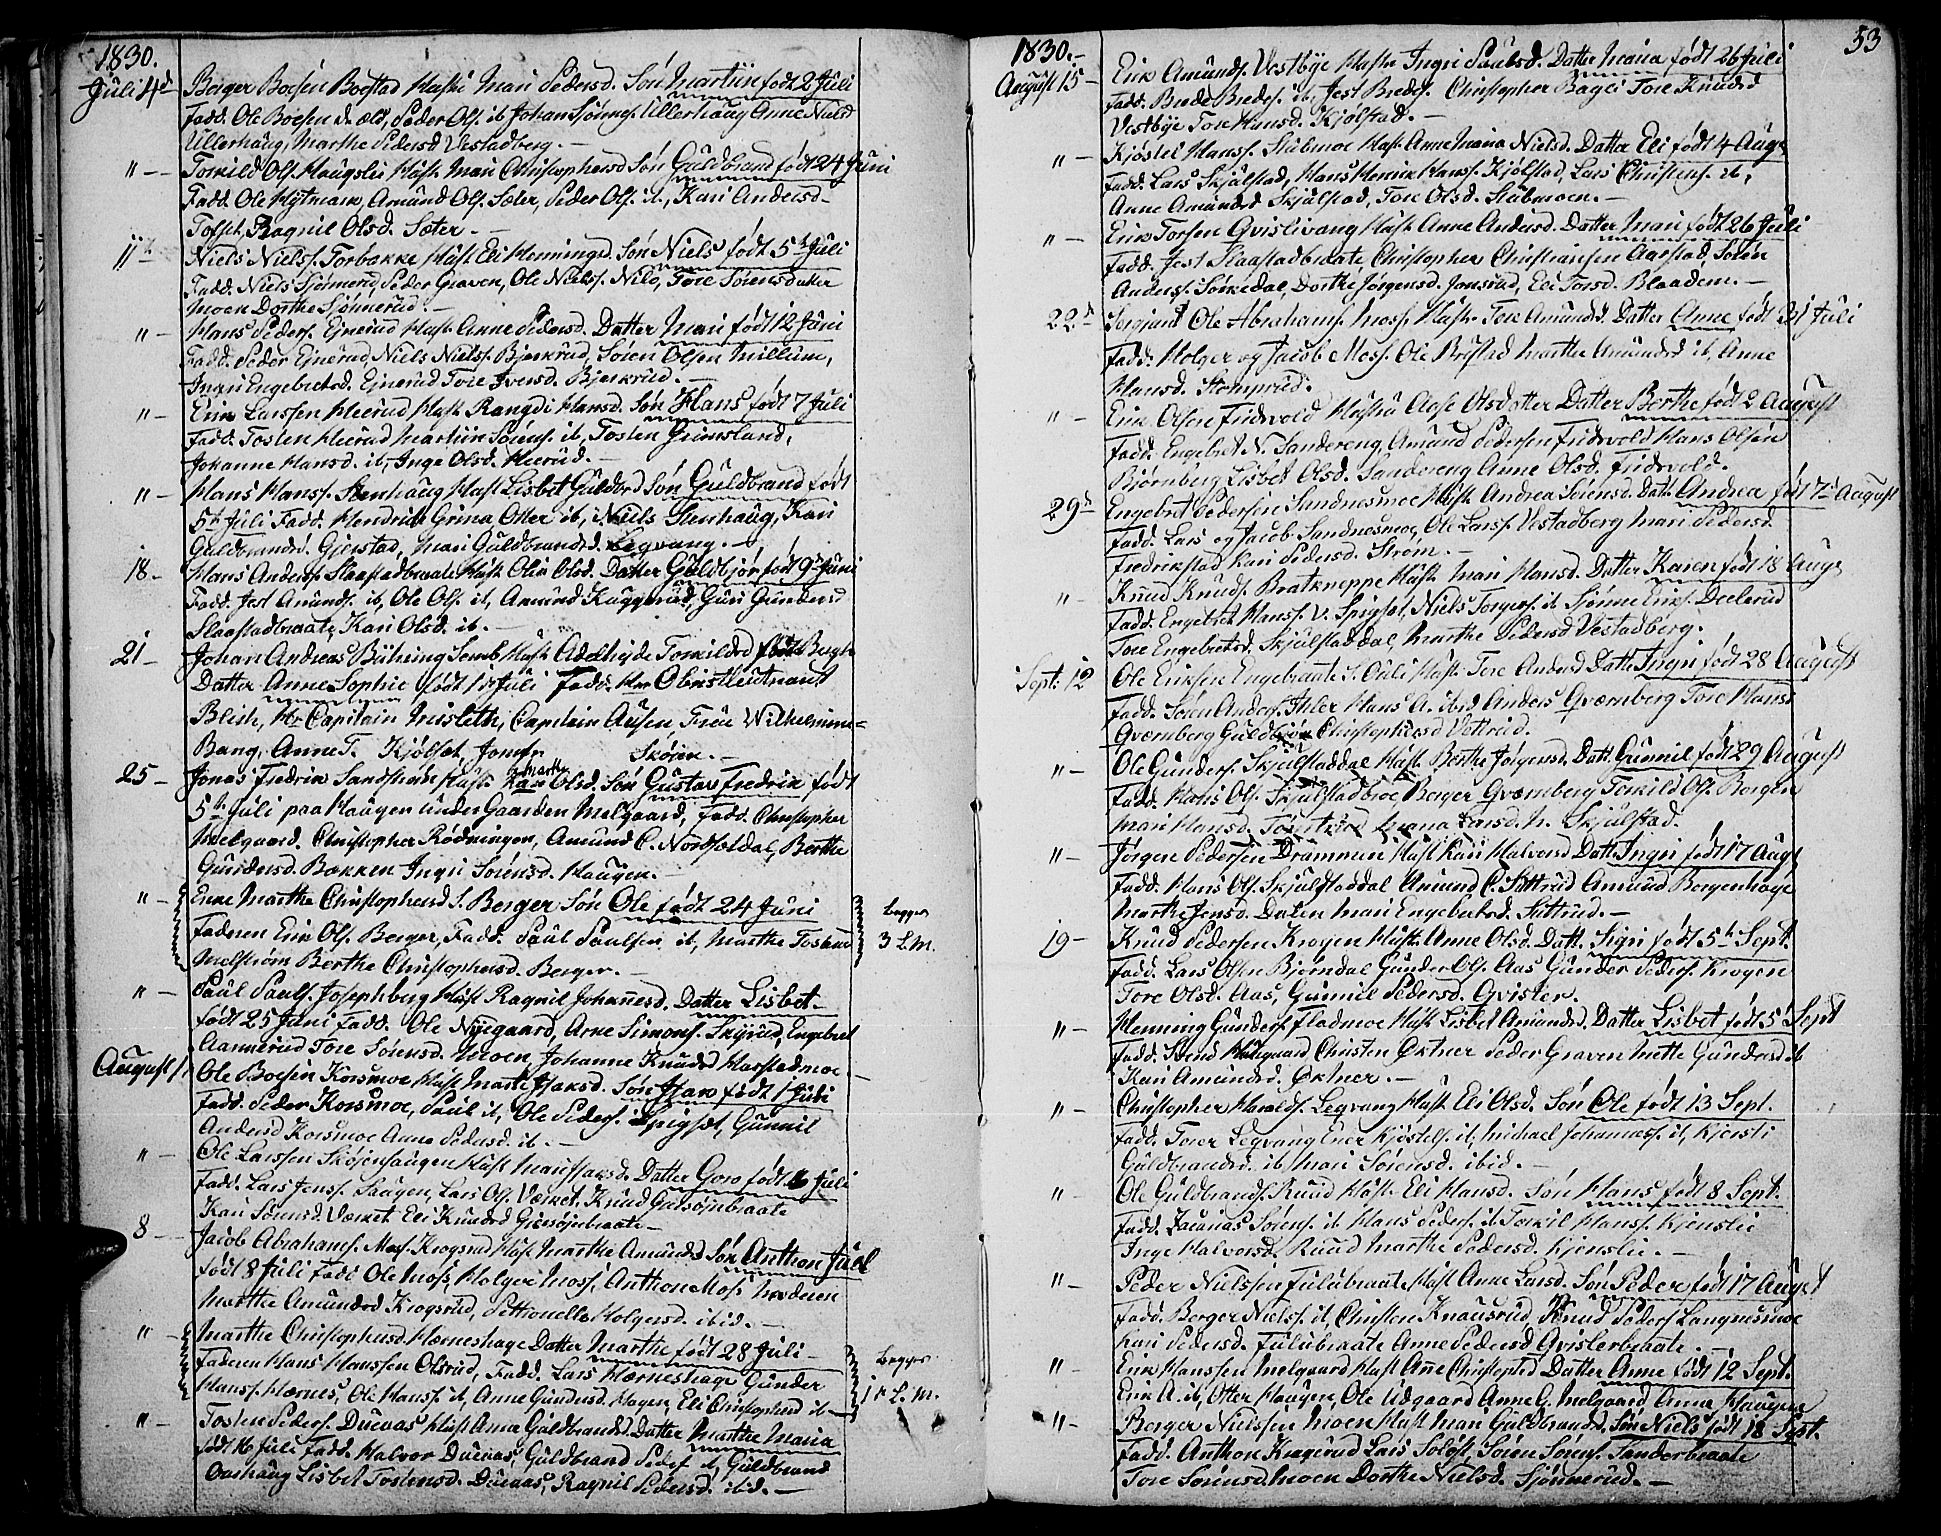 1830.
Juli 4d Berger Boesen Boestad Hust: Mari Pedersd. Søn Martiin født 2 Juli
Fadd. Ole Boesen de æld, Peder Ols. ib Johan Sjønnes. Ullerhaug Anne Nielsd
Ullerhaug, Marthe Pedersd Vestadberg. —
" — Torkild Ols. Haugsli Hust: Mari Christophersd Søn Guldbrand født 24 Juni
Fadd. Ole Hytmarn, Amund Ols. Sæter, Peder Ols. ib, Kari Andersd
Toffst, Ragnil Olsd. Sæter. —
11te Niels Nielss. Torbakke Hust Eli Henningsd. Søn Niels født 5te Juli
Fadd. Niels Sjønnerud Peder Graven, Ole Nielss. Nilo, Tore Sørensdatter
Moen Dorthe Sjønnerud. —
" — Hans Peders. Ejnerud Hust Anne Pedersd. Datter Mari født 12 Juni
Fadd. Peder Ejnerud, Niels Nielss. Bjerkrud, Søren Olsen Millum,
Inari Engebretsd. Ejnerud Tore Iversd. Bjerkrud. —
" — Erik Larssen Heerud Hust Rangdi Hansd. Søn Hans født 7 Juli
Fadd. Tosten Heerud Martiin Sørens. ib, Tosten Grimsland,
Johanne Hansd. ib, Inge Olsd. Heerud. —
" — Hans Hanss. Stenhaug Hust Lisbet Guldbrd Søn Guldbrand født
5te Juli Fadd. Hendrich Grina Otter ib, Niels Stenhaug, Kari
Guldbrandsd. Gjerstad, Mari Guldbrandsd. Legvang. —
18 — Hans Anders. Slaastadbraate Hust Olia Olsd. Datter Guldbjør født 9de Juni
Fadd. Jest Amunds. ib, Ole Ols. ib, Amund Kuggerud, Guri Gundersd
Slaastadbraate Kari Olsd. ib. —
21 — Johan Andreas Bühring Hust Adelheide Torkildsd
Datter Anne Sophie født 1 Juli Fadd. Hr Obristleutnant
Blich, Hr Capitain Misleth, Capitain Ausen Frøe Wilhelmine
Bang, Anne T. Kjølset, Jomfr Skøien. —
25 — Jonas Fredrik Sandstrøm Hust: Kari Marthe Olsd. Søn Gustav Fredrik født
5te Juli paa Haugen under Gaarden Melgaard, Fadd. Christopher
Melgaard. Christopher Rødningen, Amund C. Norsfeldal, Berthe
Gundersd. Bækken Ingri Sørensd. Haugen. —
" — Enke Marthe Christophersd S. Berger Søn Ole født 24 Juni
Faderen Erik Ols. Berger, Fadd. Paul Paulsen ib, Marthe Tostens
Melstrøm Berthe Christophersd. Berger. —
begges
3 L. M.
" — Paul Pauls. Josephberg Hust Ragnil Johannesd. Datter Lisbet
født 25 Juni Fadd. Ole Nyegaard, Arne Simons. Skyrud, Engebret
Aannerud Tore Sørensd. Moen, Johanne Knudsd Harstadmoe. —
August 1. Ole Boesen Korsmoe Hust Marte Isaksd. Søn Isak født 1 Juli
Fadd. Peder Korsmoe, Paul ib, Ole Peders. Spigset, Gunnil
Andersd Korsmoe Anne Pedersd. ib. —
" — Ole Larssen Skøjenhaugen Hust Mari Isaksd. Datter Goro født 6 Juli
Fadd. Lars Jenss. Haugen, Lars Ols. Værket, Knud Gjersøjebraate
Kari Sørensd. Værket Eli Knudsd Gjersøjebraate —
8 — Jacob Abrahams. Mos. Krogsrud Hust Marthe Amundsd Søn Anthon Juel
født 8 Juli Fadd Ole Moss, Holger Moss, Anthon Moss Moderen
Marthe Amundsd Krogsrud, Pettronelle Holgersd. ibid. —
" — Marthe Christophersd. Hærneshage Datter Marthe født 28 Juli —
Faderen Hans Hanssen Olsrud, Fadd. Lars Hærneshage Gunder
Hanss. Hærnes, Ole Hanss. ib, Anne Gundersd. Hagen, Eli Christophersd ib —
begges
1te L. M.
" — Tosten Peders. Duenas Hust Anna Guldbrandsd. Datter Marthe Maria
født 16 Juli Fadd. Halvor Duenas, Guldbrand Peders ib, Guldbrand
Aashaug Lisbet Tostensd. Duenas, Ragnil Pedersd. ibid. —
1830. —
53
August 15 — Erik Amunds. Vestbye Hust: Ingri Paulsd. Datter Maria født 26 Juli
Fadd. Brede Bredes. ib, Jest Bredes. Christopher Bagli Tore Knudsd
Vestbye Tore Hansd. Kjølstad. —
" — Kjøstel Hanss. Stubmoe Hust. Anne Maria Nielsd. Datter Eli født 4 Augs
Fadd. Lars Skjulstad, Hans Henrik Hanss. Kjølstad, Lars Christens. ib,
Anne Amundsd Skjulstad, Tore Olsd. Stubmoen. —
" — Erik Torsen Qvislivang Hust Anne Andersd. Datter Mari født 26 Juli
Fadd. Jest Slaastadbraate, Christopher Christiansen Aarstad, Søren
Anders. Sørkedal, Dorthe Jørgensd. Jonsrud, Eli Torsd. Blaadem. —
22de Sergjant Ole Abrahams. Moss. Hust: Tore Amundsd. Datter Anne født 21 Juli
Fadd. Holger og Jacob Moss. Ole Røgstad Marthe Amundsd ib, Anne
Hansd. Stomprud.
" — Erik Olsen Fridsvold Hustru Aase Olsdatter Datter Berthe født 2 August
Fadd. Engebret N. Sandereng, Amund Pedersen Fridsvold Hans Olsen
Bjørnberg Lisbet Olsd. Sandereng Anne Olsd. Fridsvold.
29de Engebret Pedersen Sandnesmoe Hust. Andrea Sørensd. Datt. Andrea født 7de August
Fadd. Lars og Jacob Sandnesmoe, Ole Larss. Vestadberg Mari Pedersd.
Fredrikstad Kari Pedersd. Strøm. —
" — Knud Knuds. Bratkneppe Hust. Mari Hansd. Datter Karen født 18 Augs
Fadd. Engebret Hanss. V. Spigset, Niels Torgers. ib Sjønne Eriks. Deelerud
Tore Engebretsd. Skjulstaddal, Marthe Pedersd Vestadberg.
Sept. 12 Ole Eriksen Engebraate S. Ouli Hust: Tore Andersd Datt. Ingri født 28 August
Fadd. Søren Anders. Ihler Hans A. ibid Anders Qvæmberg Tore Hansd
Qvæmberg Guldbjør Christophersd Vetterud.
" — Ole Gunders. Skjulstaddal Hust. Berthe Jørgensd. Datt. Gunnil født 29 August
Fadd. Hans Ols. Skjulstadbroe, Berger Qvæmberg Torkild Ols. Borgen
Mari Hansd. Larsd. N. Skjulstad.
" — Jørgen Pedersen Drammen Hust Kari Halvorsd Datt. Ingri født 17 Augs
Fadd. Hans Ols. Skjulstaddal Amund C. Sittrud Amund Bergenhage
Marthe Jensd. Dalen Mari Engebretsd. Sittrud. —
19 — Knud Pedersen Krogen Hust: Anne Olsd. Datt. Sigri født 5te Sept.
Fadd. Lars Olsen Bjørndal Gunder Ols. Aas Gunder Peders. Krogen
Tore Olsd. Aas, Gunnil Pedersd. Qvister.
" — Henning Gunders. Fladmoe Hust Lisbet Amundsd. Datter Lisbet født 5 Sept
Fadd. Svend Hougaard Christen Øktner Peder Graven Mette Gundersd ib
Kari Amundsd. Øktner. —
" — Christopher Haralds. Legvang Hust Eli Olsd. Søn Ole født 13 Sept.
Fadd. Torer Legvang Ener Kjøstels. ib, Michael Johannss. ib, Kjersti
Guldbrandsd. ib, Mari Sørensd. ibid. —
" — Ole Guldbrands. Ruud Hust. Eli Hansd. Søn Hans født 8 Sept.
Fadd. Zacarias Sørens. ib Hans Peders. ib Torkil Hanss. Kjenslie
Inge Halvorsd. Ruud Marthe Pedersd. Kjenslie. —
" — Peder Nielssen Fulubraate Hust Anne Larsd. Søn Peder født 17 August
Fadd. Berger Nielss. ib, Christen Knausrud, Knud Peders Langnesmoe
Kari Pedersd. Fulubraate Anne Pedersd Qvisterbraate. —
" Erik Hanssen Melgaard Hust Anne Christophd Datter Anne født 12 Sept.
Erik A. ib, Otter Haugen, Ole Udgaard Anne G. Melgaard Anna Haugen
" — Berger Nielssen Moen Hust Mari Guldbrandsd. Søn Niels født 18 Sept.
Fadd. Anthon Krogsrud Lars Soløst, Søren Sørens. Sanderbraate
Tore Sørensd Moen Dorthe Nielsd. Sjønnerud. —